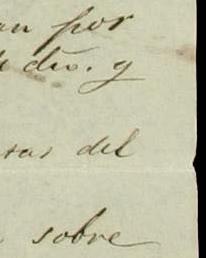 an por
dio. y
sas del
sobre